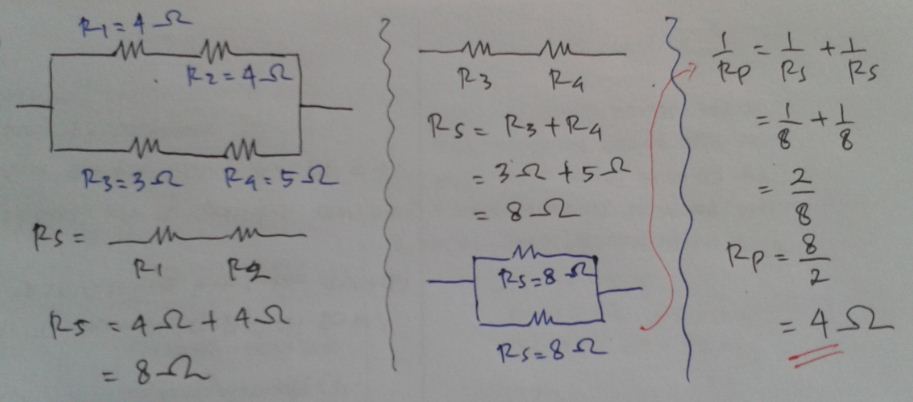 R1 = 4 Ω
R2 = 4 Ω
R3 = 3 Ω R4 = 5 Ω
Rs =
R1 R2
Rs = 4 Ω + 4 Ω
= 8 Ω
R3 R4
Rs = R3 + R4
= 3 Ω + 5 Ω
= 8 Ω
Rs = 8 Ω
Rs = 8 Ω
1/Rp = 1/Rs + 1/Rs
= 1/8 + 1/8
= 2/8
Rp = 8/2
= 4 Ω